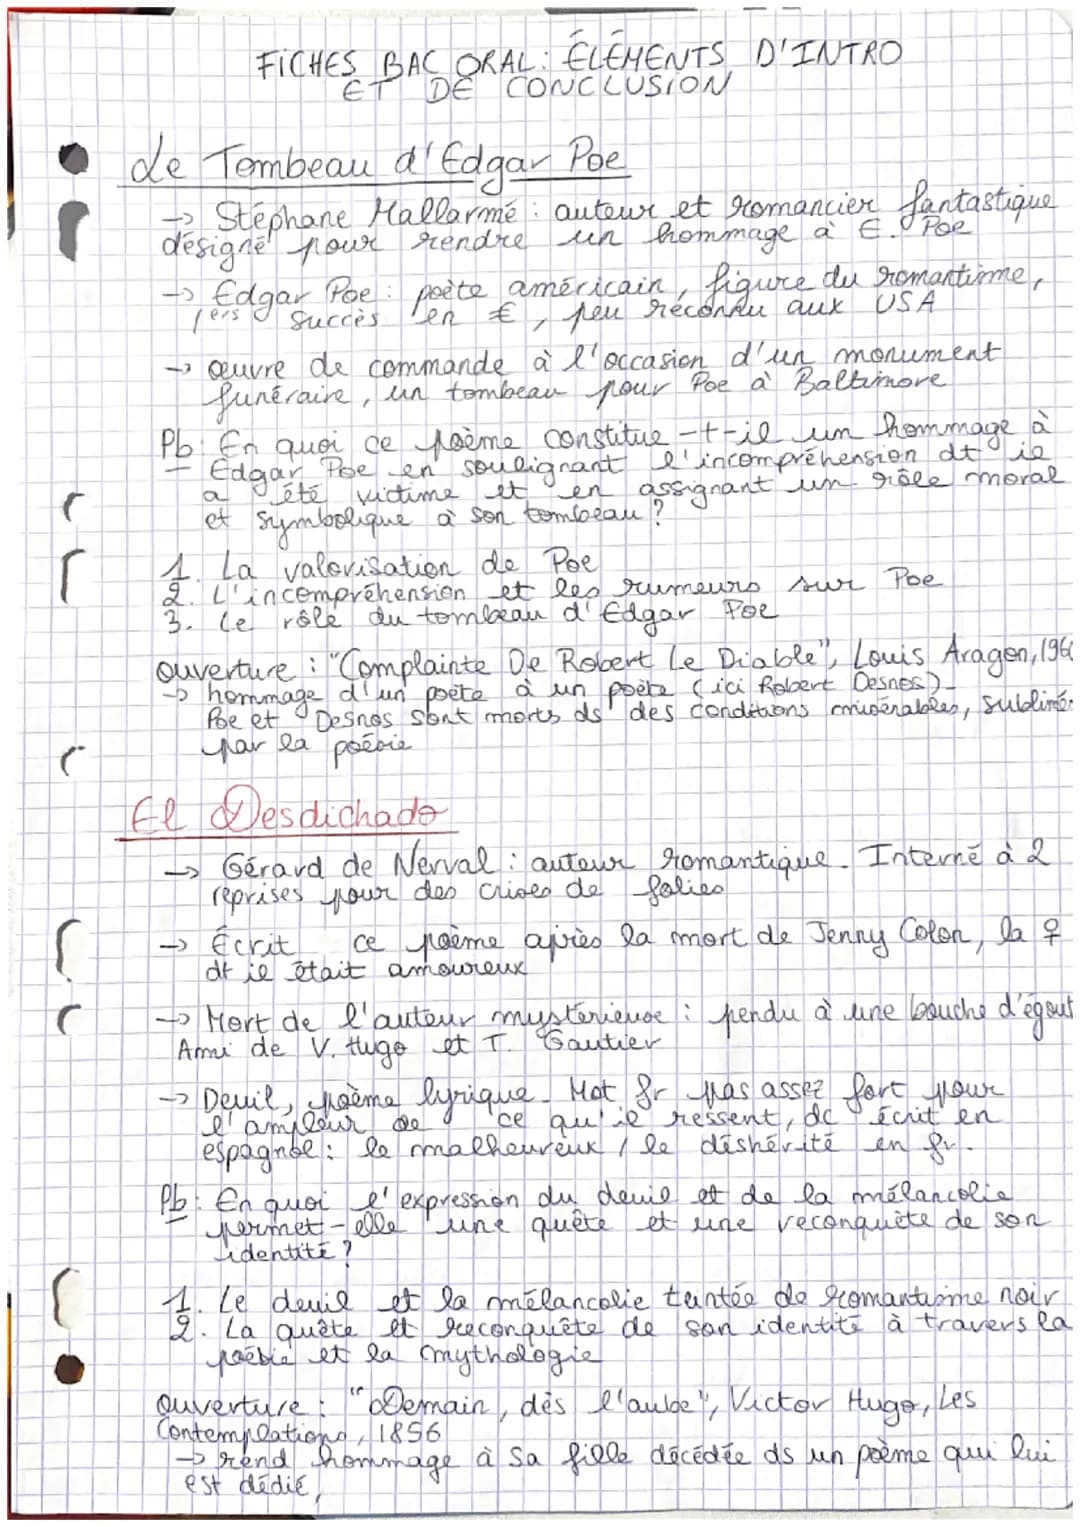 FICHES BAC ORAL : ÉLÉMENTS D'INTRO
ET DE CONCLUSION
Le Tombeau d'Edgar Poe
→ Stéphane Mallarmé : auteur et romancier fantastique
désigné pour rendre un hommage à E. Poe
→ Edgar Poe : poète américain, figure du romantisme,
1ers succès en €, peu reconnu aux USA
→ œuvre de commande à l'occasion d'un monument
funéraire, un tombeau pour Poe à Baltimore
Pb : En quoi ce poème constitue-t-il un hommage à
Edgar Poe en soulignant l'incompréhension dt il
a été victime et en assignant un rôle moral
et symbolique à son tombeau ?
1. La valorisation de Poe
2. L'incompréhension et les rumeurs sur Poe
3. Le rôle du tombeau d'Edgar Poe
Ouverture : "Complainte De Robert Le Diable", Louis Aragon, 196
→ hommage d'un poète à un poète (ici Robert Desnos).
Poe et Desnos sont morts ds des conditions misérables, sublimés
par la poésie
El Desdichado
→ Gérard de Nerval : auteur romantique. Interné à 2
reprises pour des crises de folies
→ Écrit ce poème après la mort de Jenny Colon, la ♀
dt il était amoureux
→ Mort de l'auteur mystérieuse : pendu à une bouche d'égout
Ami de V. Hugo et T. Gautier
→ Deuil, poème lyrique. Mot fr pas assez fort pour
l'ampleur de ce qu'il ressent, dc écrit en
espagnol : le malheureux / le déshérité en fr.
Pb : En quoi l'expression du deuil et de la mélancolie
permet-elle une quête et une reconquête de son
identité ?
1. Le deuil et la mélancolie teintée de romantisme noir
2. La quête et reconquête de son identité à travers la
poésie et la mythologie
Ouverture : "Demain, dès l'aube", Victor Hugo, Les
Contemplations, 1856
→ rend hommage à sa fille décédée ds un poème qui lui
est dédié,